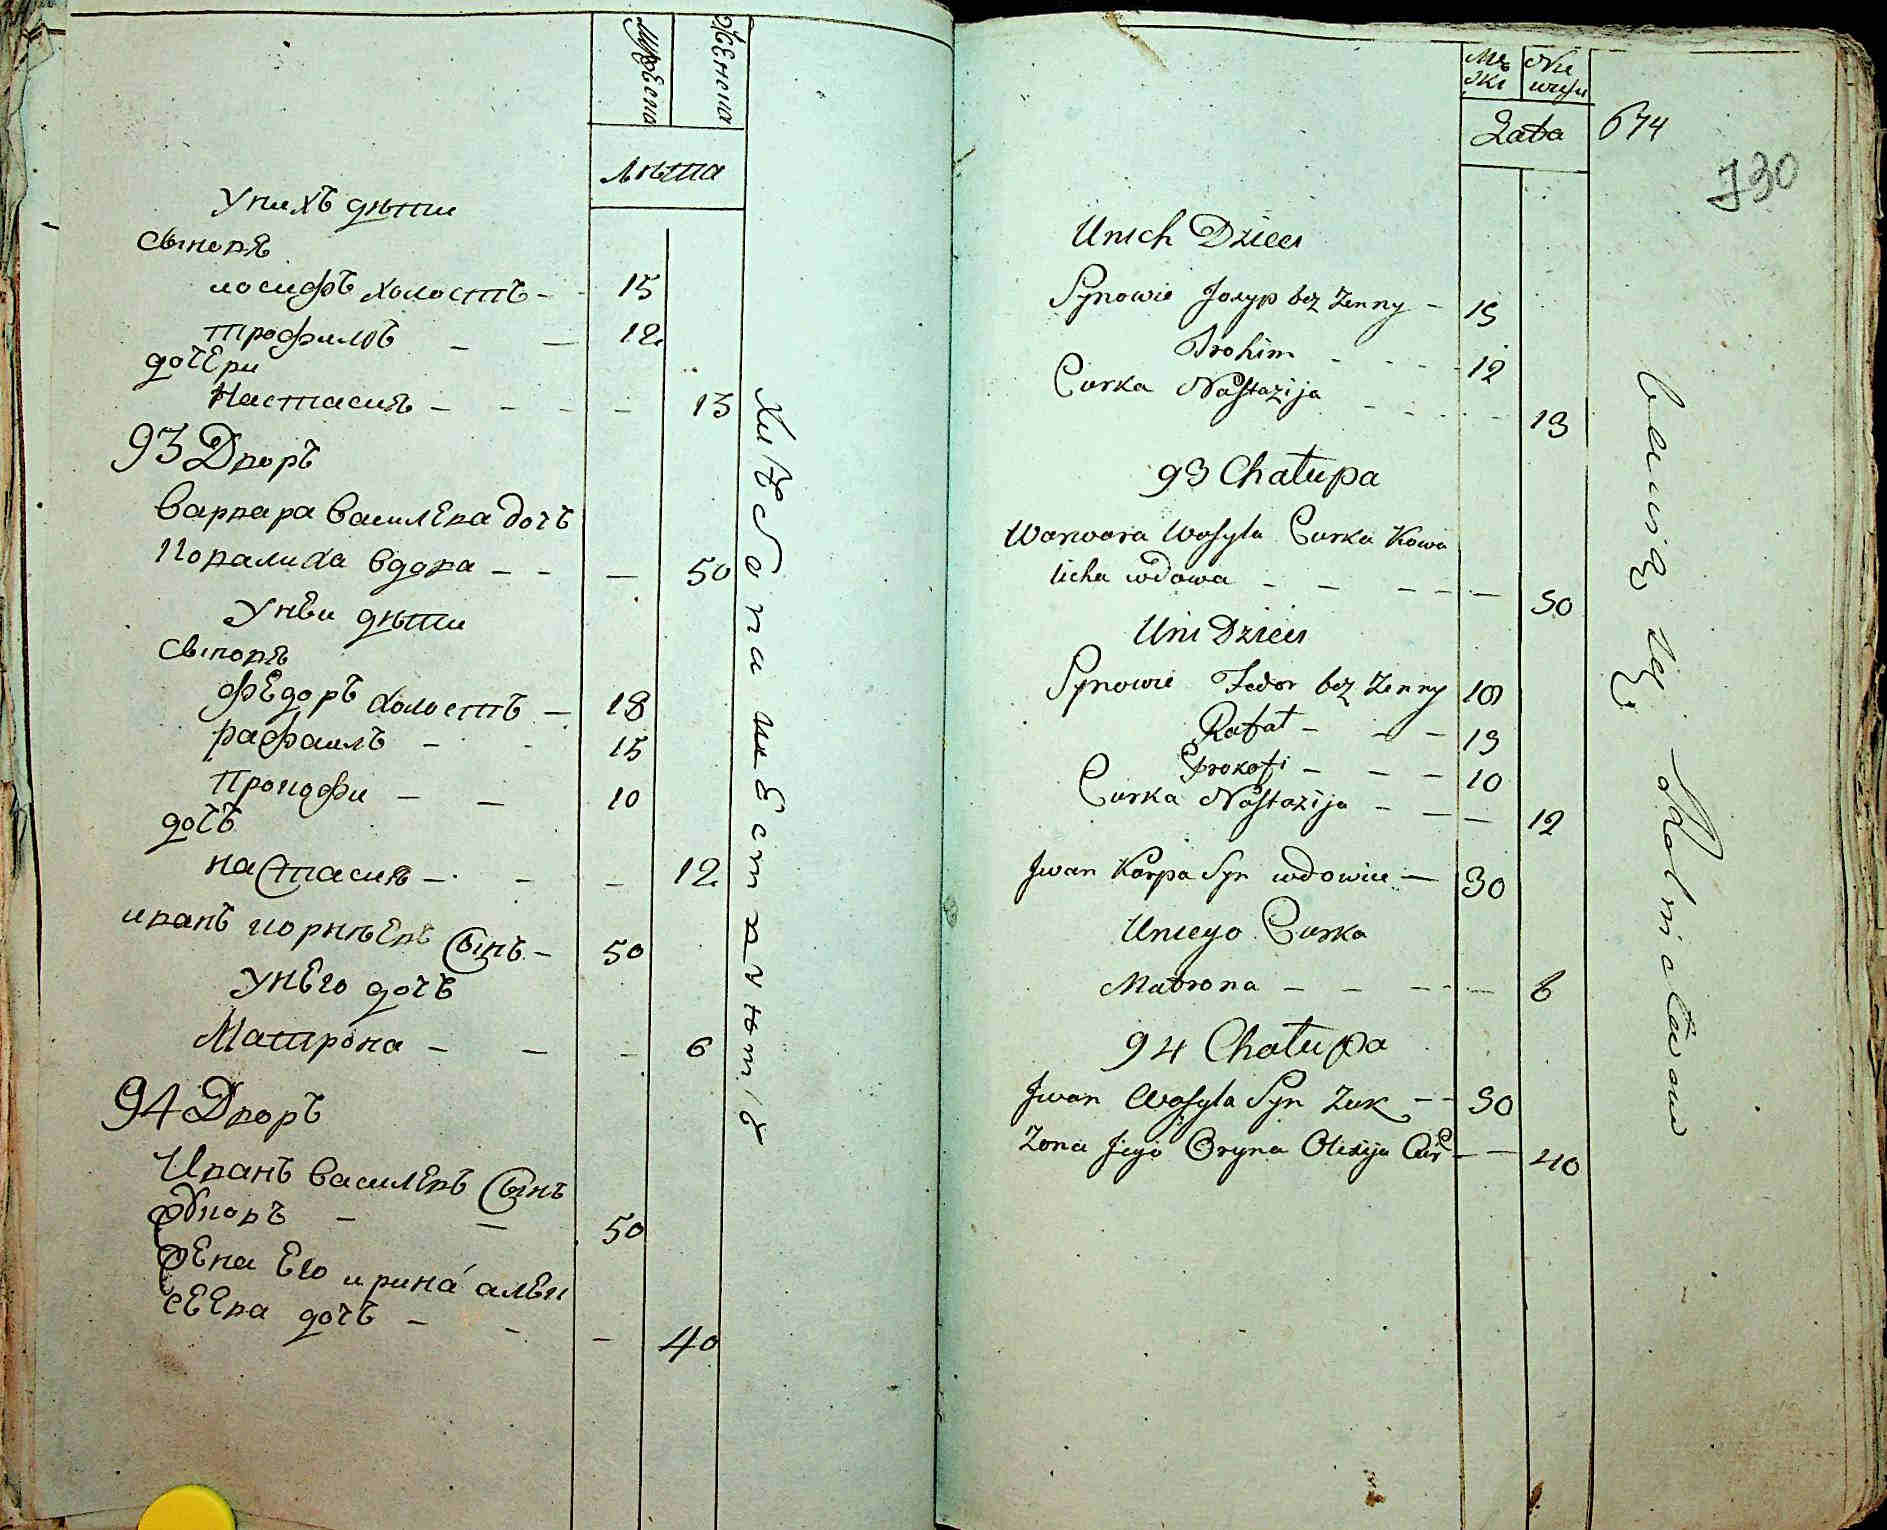 Мужеска
Женска
лѣта
У нихъ дѣти
Сыновя
иосифъ холостъ - - 15
трофимъ - - 12
дочери
Настасия - - - - 13
93 Дворъ
Варвара василева дочъ
Ковалиха вдова - - - 50
У нѣи дѣти
Сыновя
Федоръ холостъ - 18
рафаилъ - - 15
Прокофи - - 10
дочъ
настасия - - - 12
иванъ корнѣевъ сынъ - 50
У него дочъ
Матрона - - - 6
94 Дворъ
Иванъ василевъ сынъ
- - 50
жена Его ирина алеки
сеева дочъ - - - 40
Męskı
Nie
Lata
674
730
Unich Dzieci
Synowie Josyp bez Zenny - 15
Trohim - - - - 12
Curka Nastazija - - - - 13
93 Chałupa
Warwara Wasyla Curka Kowa
licha wdowa - - - - - 50
Uni Dzieci
Synowie Fedor bez Zenny 18
Rafał - - - 15
Prokofi - - - 10
Curka Nastazija - - - 12
Jwan Karpa Syn wdowiec - 30
Uniego Curka
Matrona - - - - - 6
94 Chałupa
Jwan Wasyla Syn Zuk - - 50
Zona Jego Oryna Olexija Cur - - 40